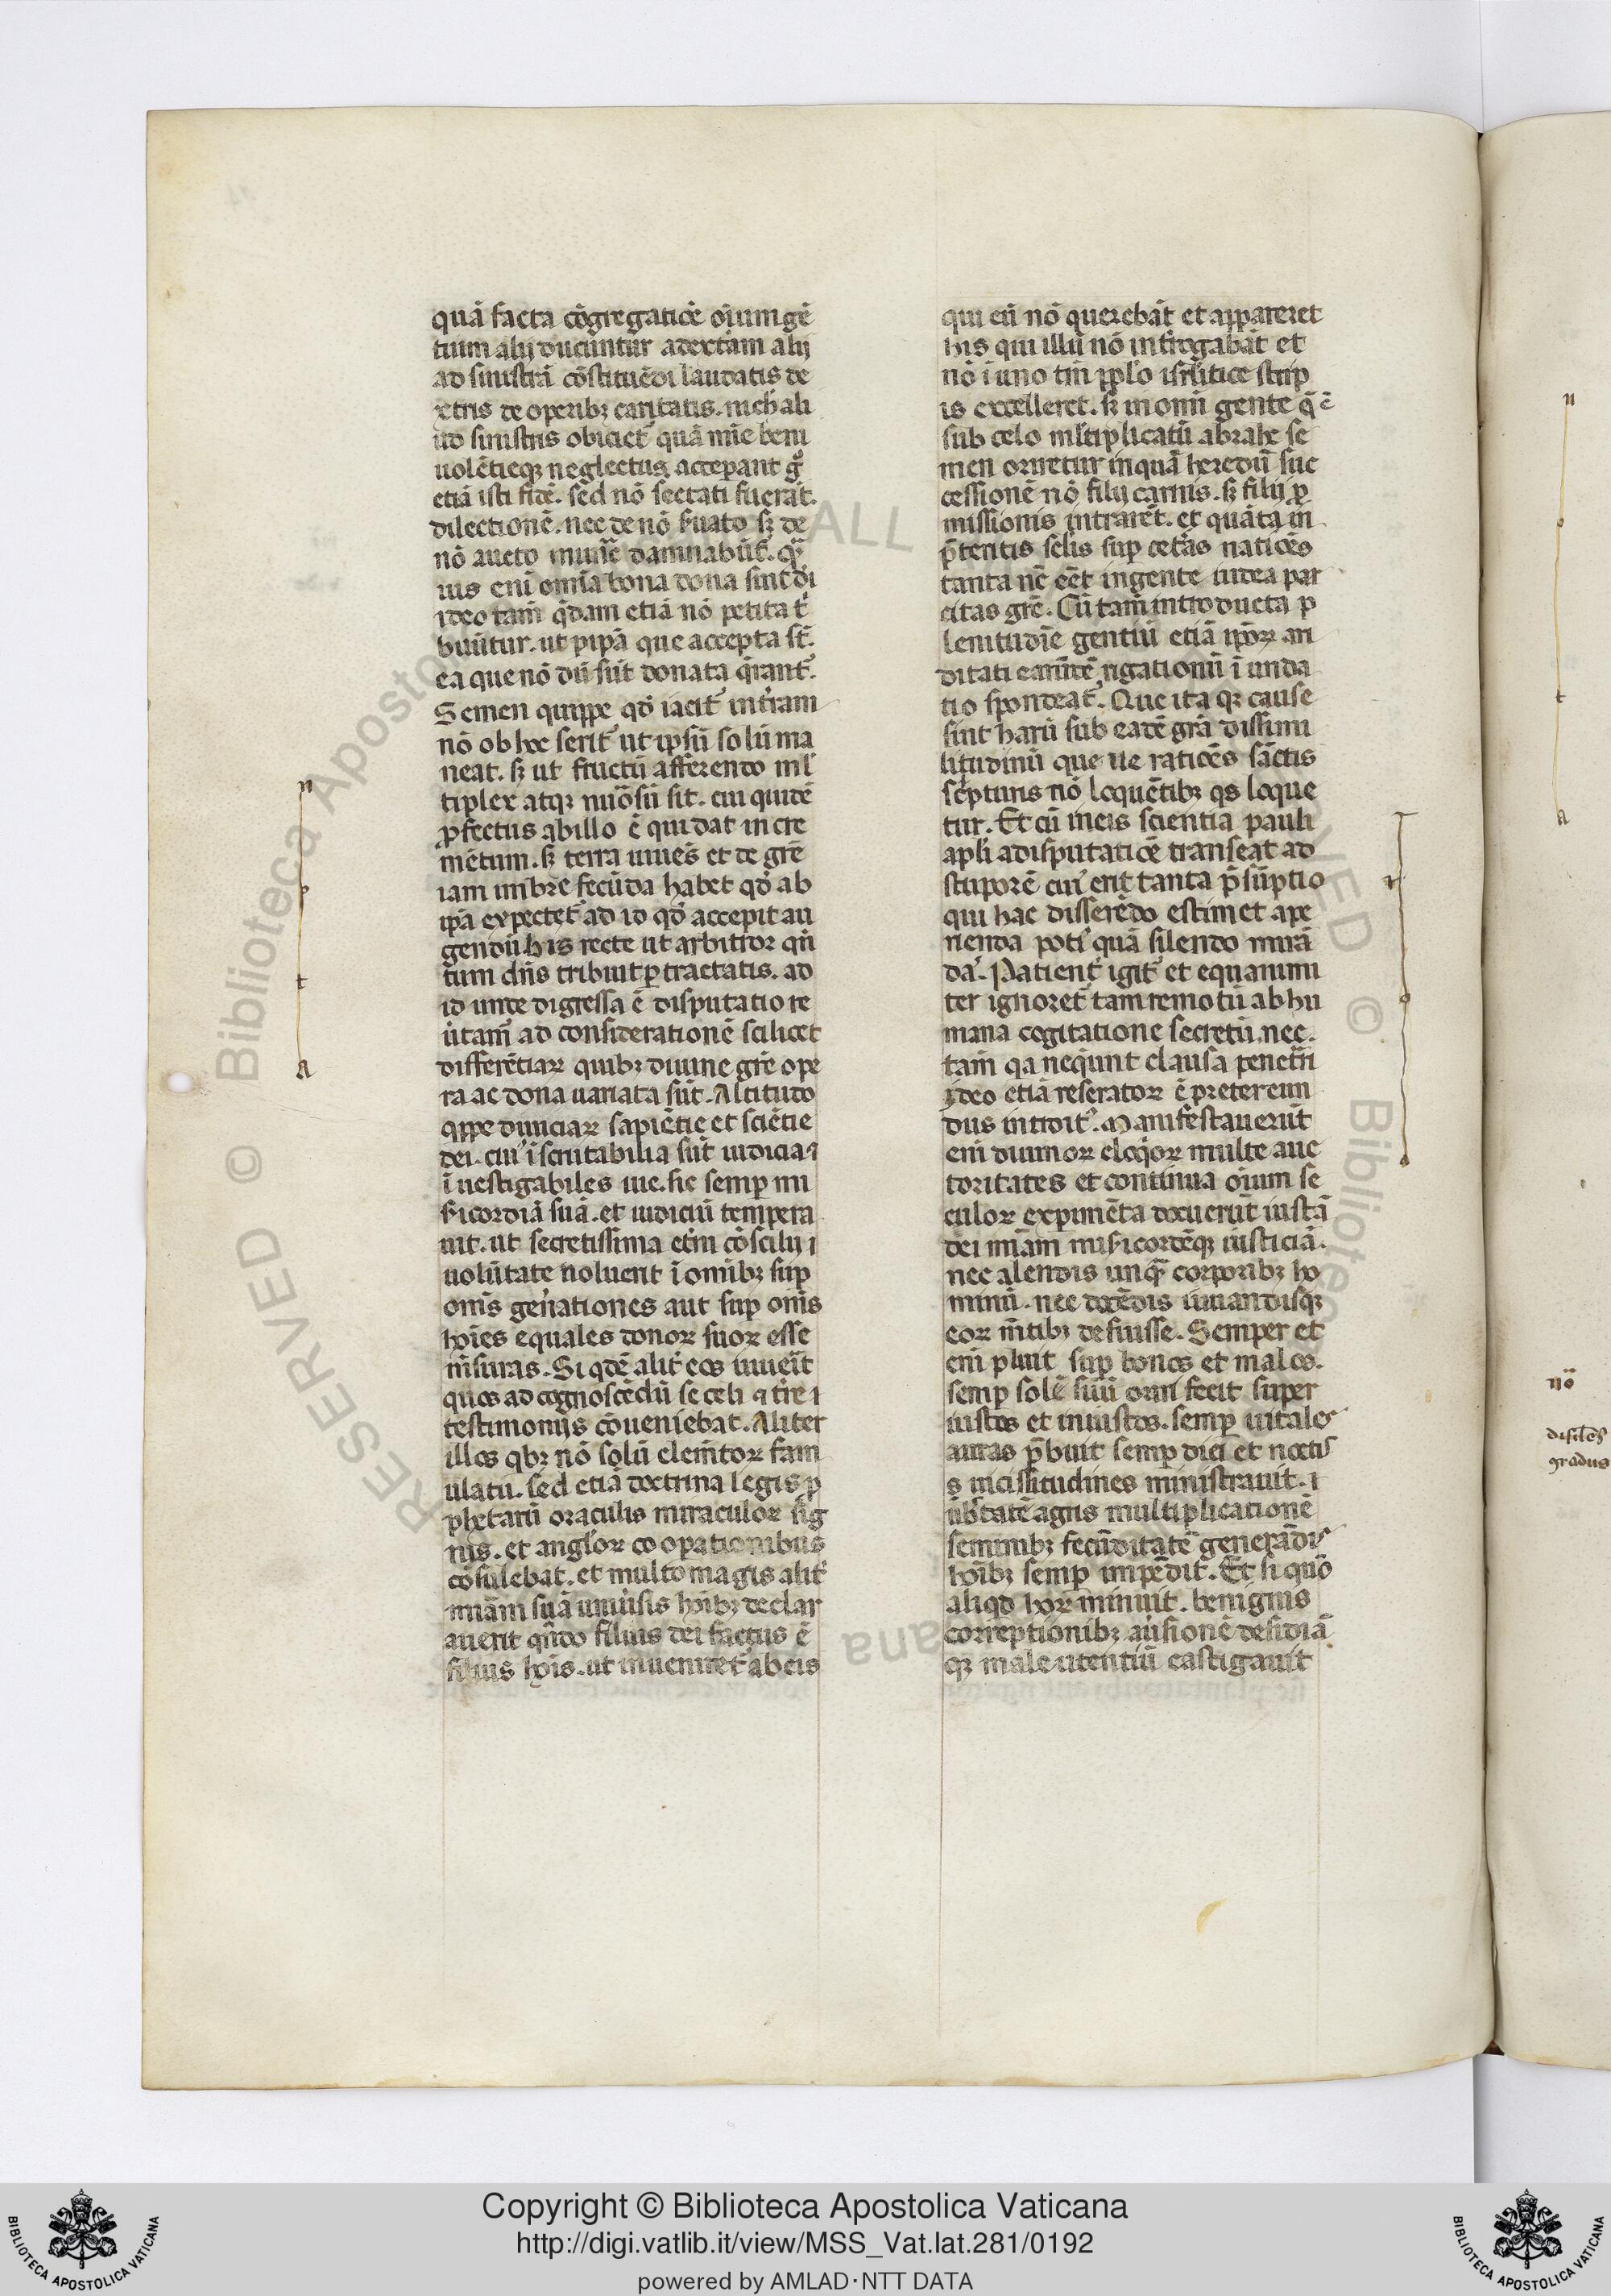 quā facta cōgregatiōe oīum gē
tium alij ducuntur addextam alij
ad sinistrā cōstituēdi laudatis de
xtris de operibꝫ caritatis. nichil ali
ud sinistris obiciet᷑ quā mīe beni
uolētieqꝫ neglectus acceperant gͦ
etiā isti fidē. sed nō sectati fuerāt.
dilectionē. nec de nō seruato sꝫ de
nō aucto mun̄e damnabūt᷑.
uis eni omīa bona dona sint di
ideo tam̄ q̄dam etiā nō petita t᷑
buūtur. ut p ip̄a que accepta st̄.
ea que nō dū sūt donata q̄rant᷑.
Semen quippe qd̄ iacit᷑ in t̄ram
nō ob hoc serit᷑ ut ip̄sū solū ma
neat. sꝫ ut fructū afferendo ml᷑
tiplex atqꝫ nūosū sit. cui quidē
ꝓfectus ab illo ē qui dat incre
mētum. sꝫ terra uiuēs et de grē
iam imbre fecūda habet qd̄ ab
ip̄a expectet᷑ ad id qd̄ accepit au
gendū his recte ut arbitror qn̄
tum dn̄s tribuit ꝑtractatis. ad
id unde digressa ē disputatio re
u᷑tam᷑ ad considerationē scilicet
differētiaꝝ quibꝫ diuine grē ope
ra ac dona uariata sūt. Altitudo
qppe diuiciaꝝ sapiētie et sciētie
dei. cui᷒ īscrutabilia sūt iudicia ⁊
ī uestigabiles uie. sic semp̄ mi
s̄icordiā suā. et iudiciū tempera
uit. ut secretissima et᷑ni cōscilij ⁊
uolūtate noluerit ī omībꝫ sup̄
onīs gen̄ationes aut sup̄ onīs
hoīes equales donoꝝ suoꝝ esse
m̄suras. Si qdē alit᷑ eos iuuerīt
quos ad cognoscēdū se celi ⁊ tr̄e ⁊
testimonijs cōueniebat. Aliter
illos qbꝫ nō solū elem̄toꝝ fam
ulatu. sed etiā doctrina legis ꝓ
phetarū oraculis miraculoꝝ sig
nis. et angl̄oꝝ cooperationibus
cōsulebat. et multo magis alit᷑
miām suā uniūsis hoībꝫ declar
auerit qn̄do filius dei factus ē
filius hoīs. ut inueniret᷑ ab eis
qui eū nō querebāt et appareret
his qui illū nō int̄rogabāt et
nō ī uno tm̄ pplo isrl̄itice stirp
is excelleret. sꝫ in omī gente q̄ ē
sub celo ml᷑tiplicatū abrahe se
men oriretur in quā heredū suc
cessionē nō filij carnis. sꝫ filij ꝓ
missionis intrarēt. et quāta in
p̄teritis sc̄lis sup̄ cet᷑as natiōes
tanta nc̄ eēt in gente iudea par
citas grē. Cū tam̄ introducta p
lenitudīe gentiū etiā ipoꝝ ari
ditati eamdē rigationū ī unda
tio spondeat᷑. Que ita qꝫ cause
sint harū sub eadē grā dissimi
litudinū que ue ratiōes sāctis
sc̄pturis nō loquētibꝫ qs loque
tur. Et cū in eis scientia pauli
apl̄i a disputatiōe transeat ad
stuporē cui᷒ erit tanta p̄sūptio
qui hac disserēdo estimet ape
rienda poti᷒ quā silendo mirā
da. Patient᷑ igit᷑ et equanimi
ter ignoret᷑ tam remotū ab hu
mana cogitatione secretū. nec.
tam̄ qa neq̄unt clausa penet᷑ri
ideo etiā reseratoꝝ ē pretereun
dus introit᷒. Manifestauerūt
eni diuinoꝝ eloqioꝝ multe auc
toritates et continua oīum se
culoꝝ experimēta docuerūt iustā
dei miām mis̄icordēqꝫ iusticiā.
nec alendis unq̄ corporibꝫ ho
minū. nec docēdis iuuandisqꝫ
eoꝝ m̄tibꝫ defuisse. Semper et
eni pluit sup̄ bonos et malos.
semp̄ solē suū oriri fecit super
iustos et iniustos. semp̄ uitales
auras p̄buit semp̄ diei et noctis
s uicissitudines ministrauit. ⁊
ub᷑tatē agris multiplicationē
seminibꝫ fecūditatē generādis
hoībꝫ semp̄ impēdit. Et si quō
aliqd hoꝝ minuit. benignis
correptionibꝫ au᷑sionē desidiā
qꝫ male utentiū castigauit
n
o
t
A
n
o
t
A
n
o
t
A
nō
gradus
Copyright © Biblioteca Apostolica Vaticana
http://digi.vatlib.it/view/MSS_Vat.lat.281/0192
powered by AMLAD·NTT DATA
BIBLIOTECA APOSTOLICA VATICANA
BIBLIOTECA APOSTOLICA VATICANA